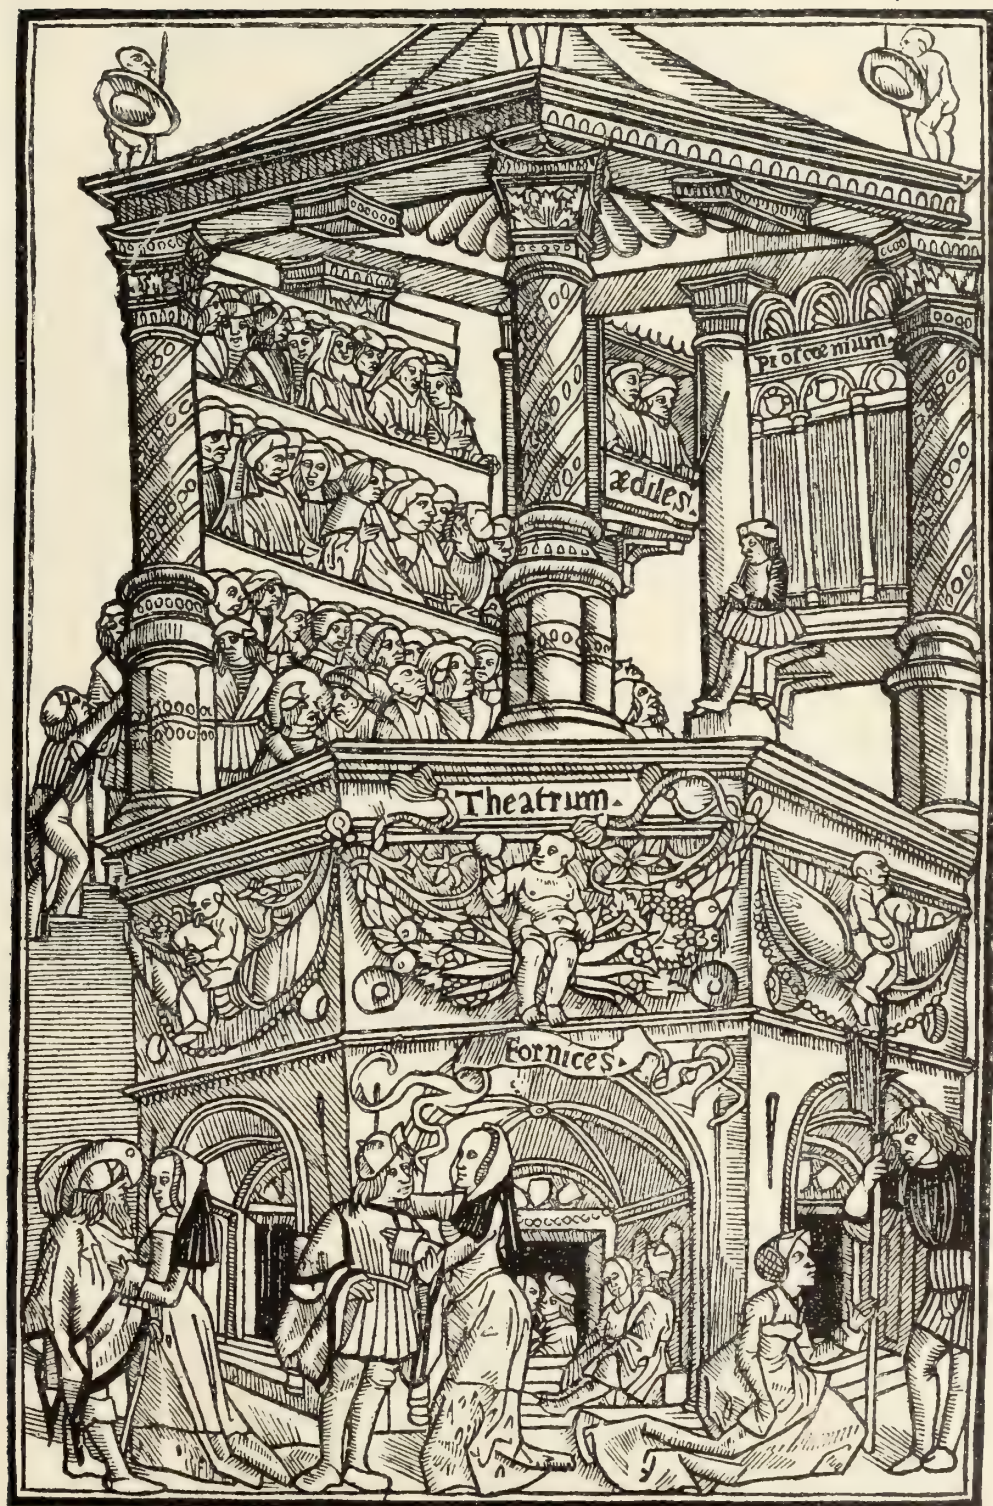 Proscenium.
ædiles.
Theatrum.
Fornices.